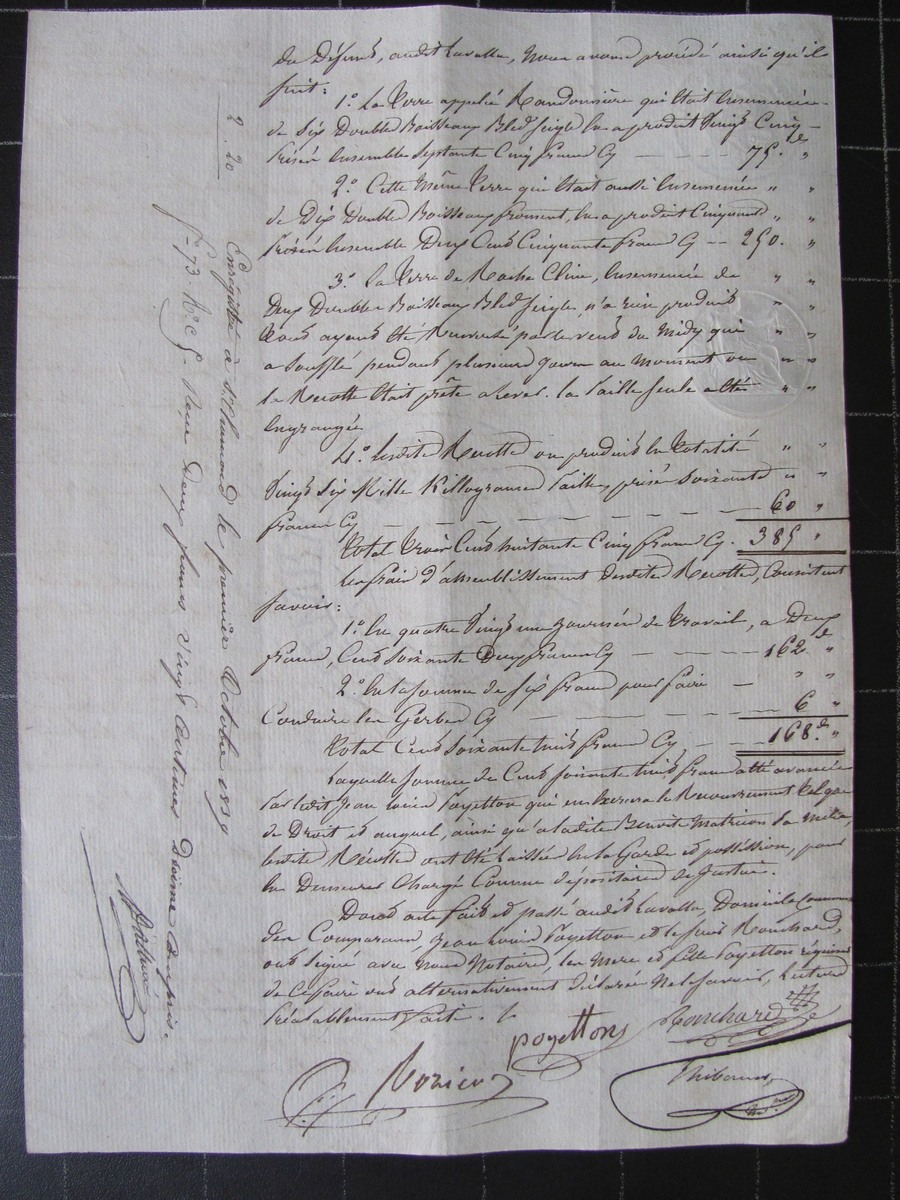 du Défunt, audit Lavalla, Nous avons procédé ainsi qu'il
suit:
1.° La Terre appelée Randonnière qui était Ensemencée
de Six Double Boisseaux Bled Seigle En a produit Vingt Cinq
prisés Ensemble Septante Cinq francs Cy — 75.
2.° Cette Même Terre qui était aussi Ensemencée " "
de Dix Double Boisseaux froment, En a produit Cinquante " "
prisés Ensemble Deux Cent Cinquante francs Cy -- 250. "
3.° La Terre de Roche Ensemencée de " "
Deux Doubles Boisseaux Bled Seigle, n'a rien produit " "
tout ayant été par le vent du Midy qui " "
a Soufflé pendant plusieurs jours au moment ou " "
la Recotte était prête a Lever. la Paille Seule a été " "
Engrangée
4.° Lesdites Recottes ont produit En Totalité " "
Vingt Six Mille Killogrammes Paille, prisés Soixante " "
francs Cy — 60 "
Total Trois Cent huitante Cinq francs Cy. 385 "
Les frais d'assemblissement desdites Recottes, Consistent
Savoir:
1.° En quatre Vingt une Journées de Travail, a Deux
francs, Cent Soixante Deux francs Cy — 162 "
2.° En la Somme de Six francs pour faire — " "
Conduire les Gerbes Cy — 6 "
Total Cent Soixante huit francs Cy — 168. "
Laquelle Somme de Cent Soixante huit francs a été avancée
Par ledit Jean Louis Payetton qui en Exercera le Recouvrement
de Droit et auquel, ainsi qu'a ladite Benoite Matricon Sa Mère,
lesdites Récottes ont été Laissées En la Garde et possession, pour
En Demeurer Chargés Comme dépositaires de Justice.
Dont acte fait et passé audit Lavalla, Domicile Commun
des Comparants, Jean Louis Payetton et le Sieur Ronchard,
ont Signé avec Nous Notaire, les Mère et fille Payetton réquises
de Ce faire ont alternativement déclaré Ne le Savoir, Lecture
Préalablement faite.
payettons Ronchard
Thibaud
2 . 20
Enregistré à St Chamond le premier Octobre 1819
f° 73. R° C 5. Reçu deux francs vingt Centimes Decime Compris.